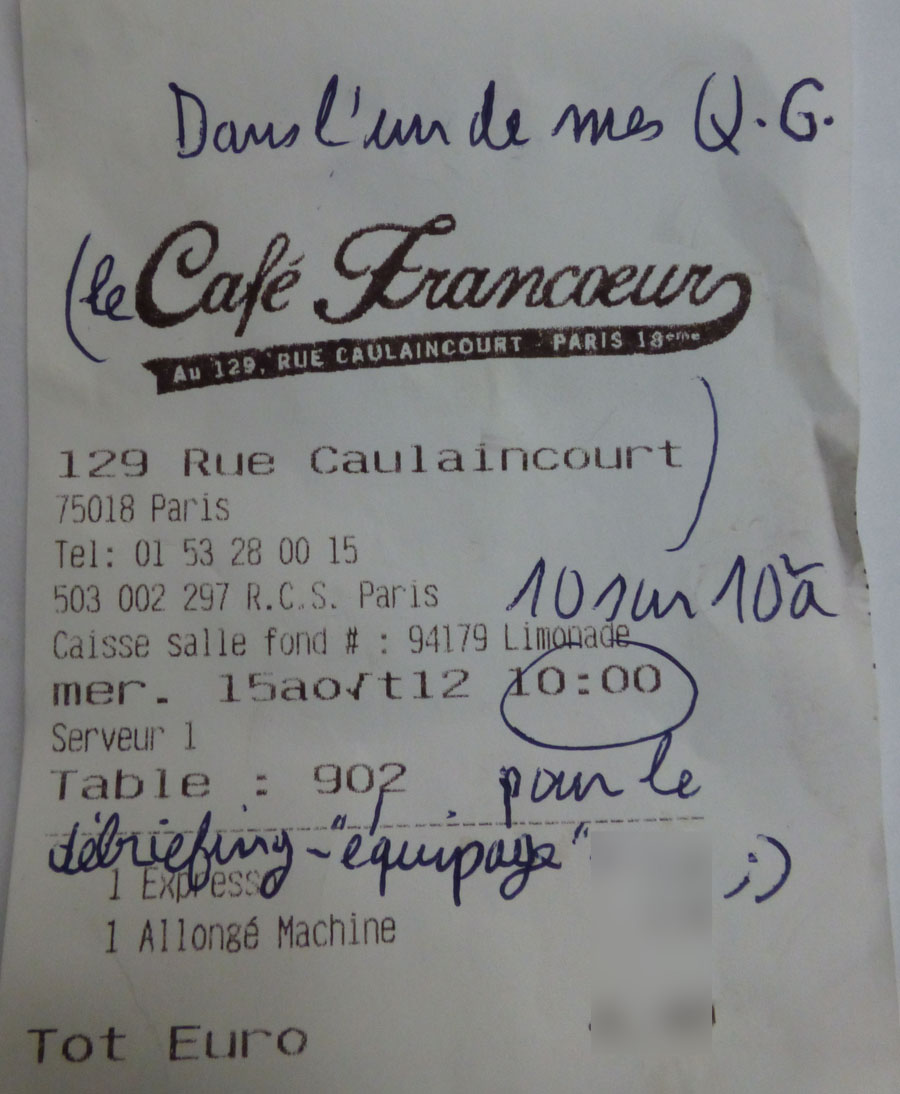 Dans l'un de mes Q.G.
(le Café Francoeur
Au 129, RUE CAULAINCOURT - PARIS 18eme
129 Rue Caulaincourt )
75018 Paris
Tel: 01 53 28 00 15
503 002 297 R.C.S. Paris
10 sur 10 à
Caisse salle fond # : 94179 Limonade
mer. 15ao√t12 10:00
Serveur 1
Table : 902
pour le
débriefing-"équipage" ;)
1 Express
1 Allongé Machine
Tot Euro